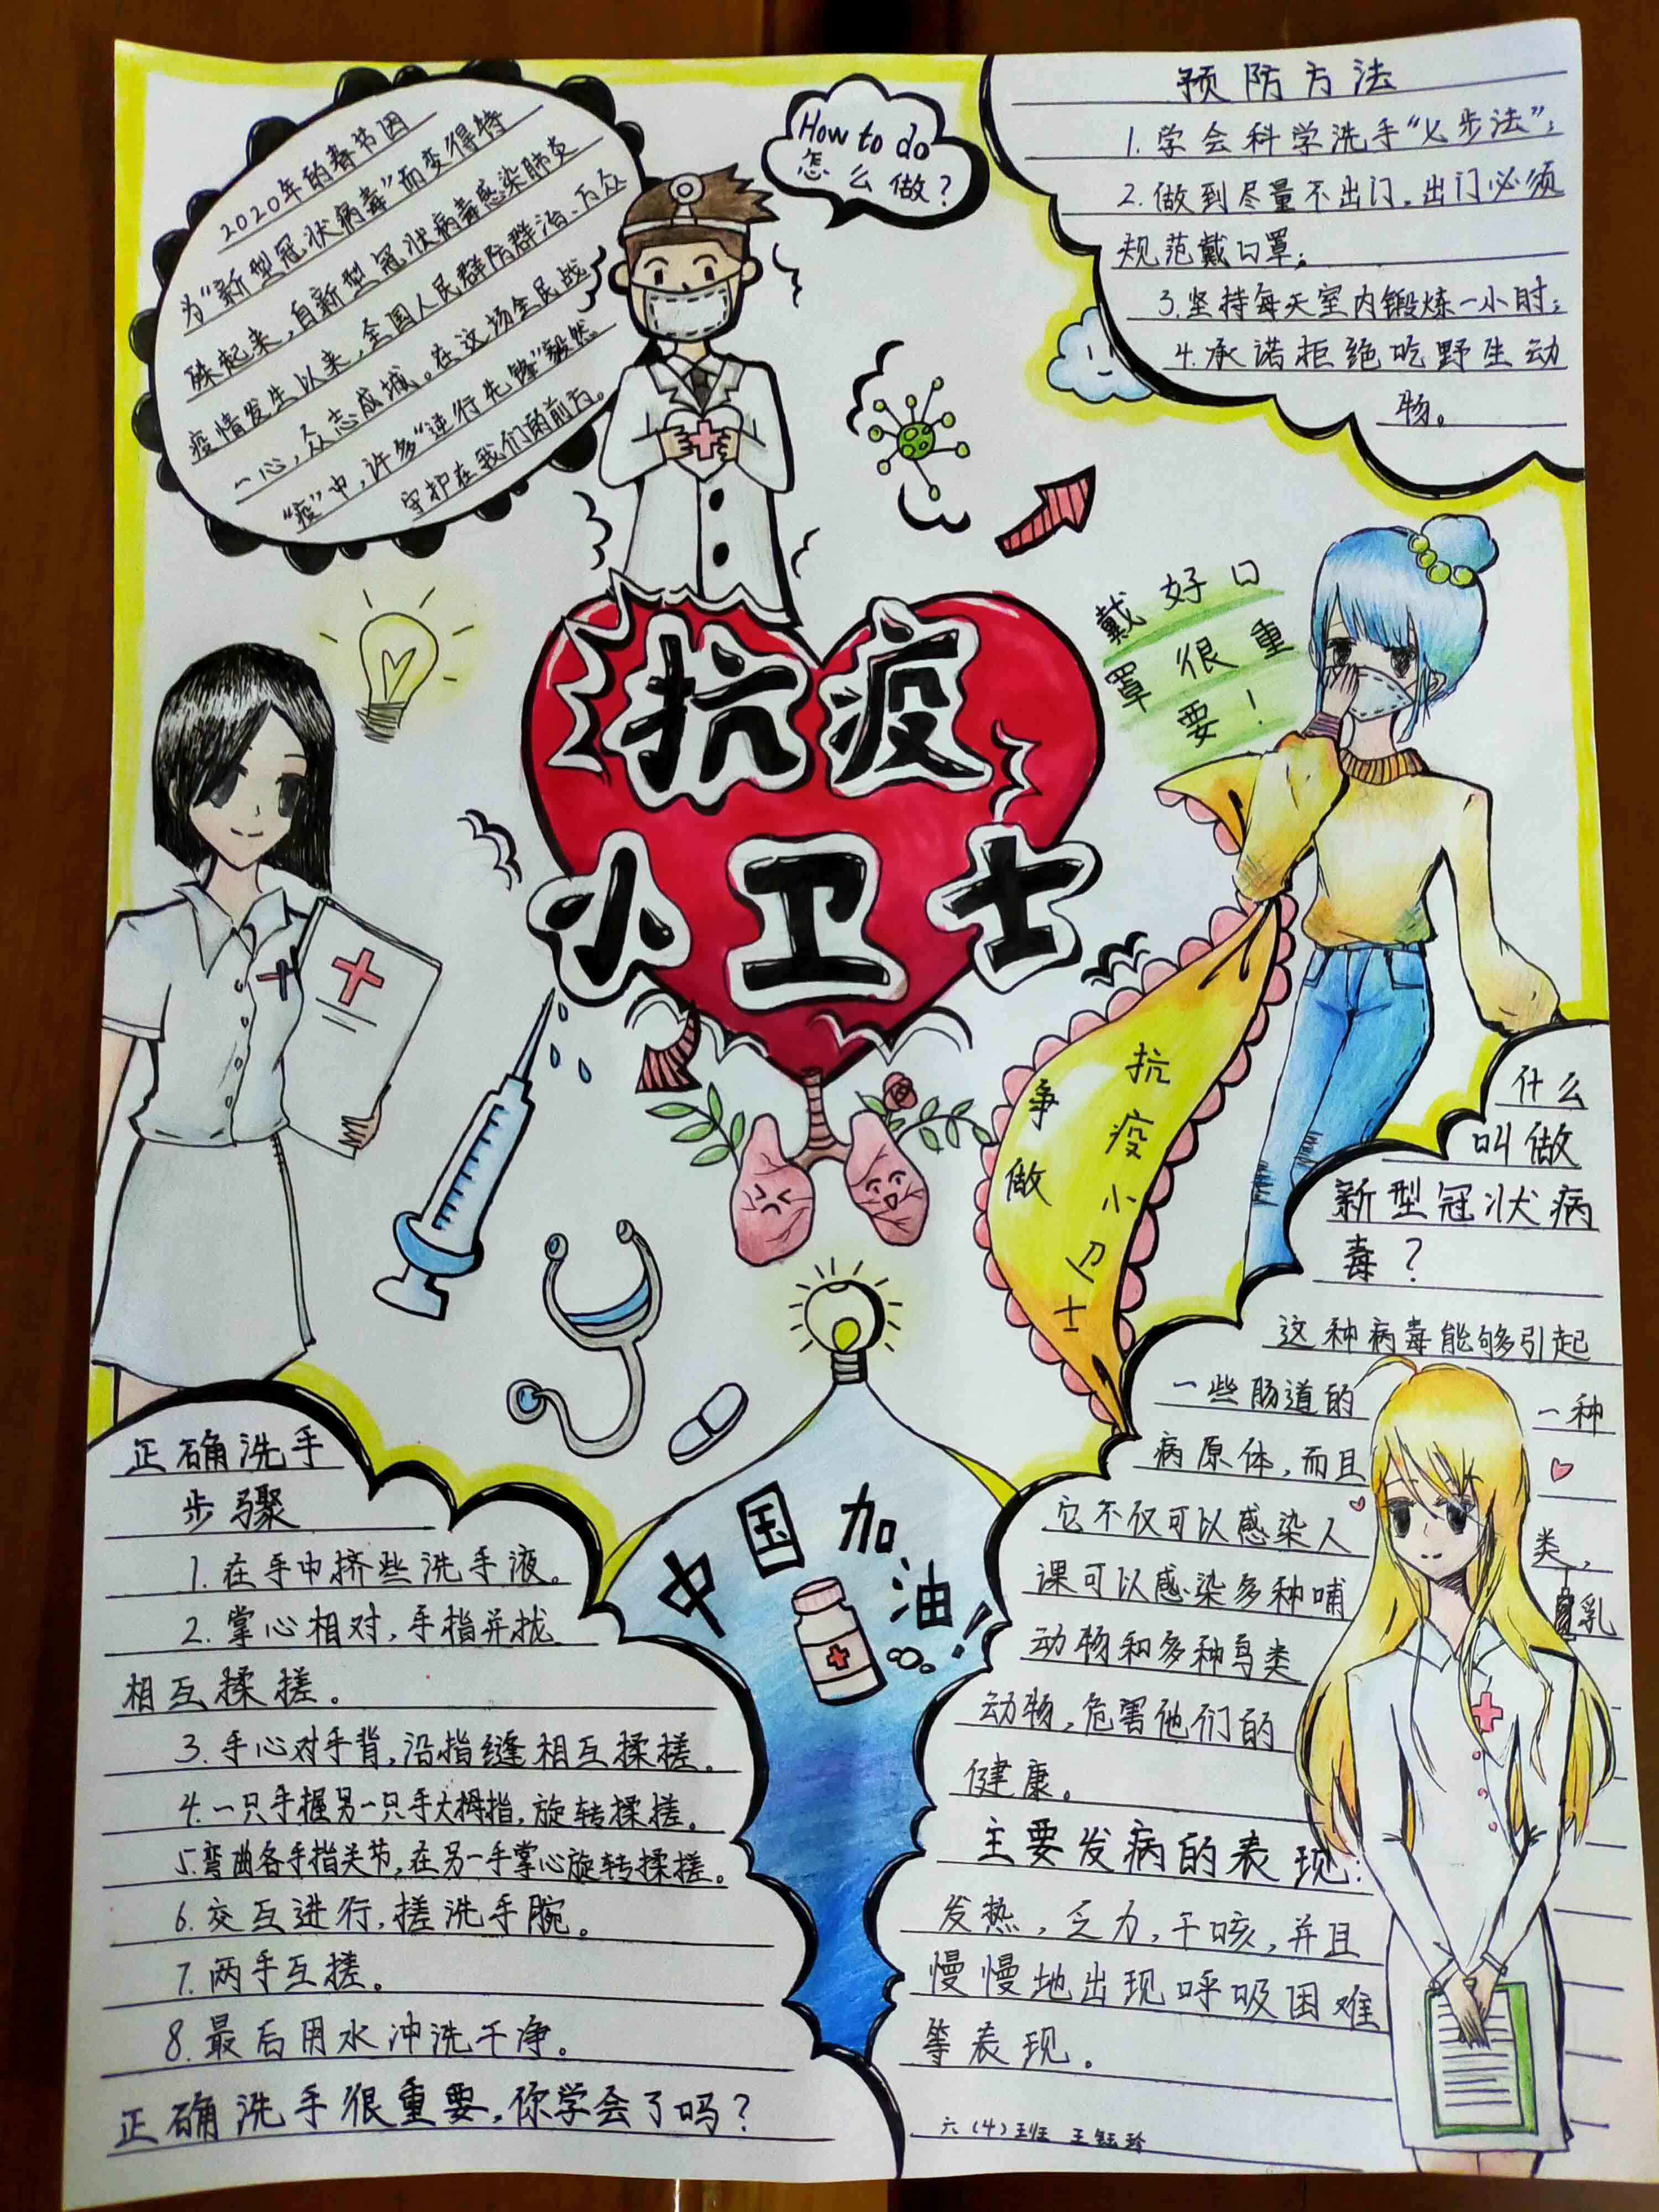 2020年的春节因
为“新型冠状病毒”而变得特
殊起来，自新型冠状病毒感染肺炎
疫情发生以来，全国人民群防群治、万众
一心，众志成城。在这场全民战
“疫”中，许多“逆行先锋”毅然
守护在我们的前方。
How to do
怎么做？
预防方法
1.学会科学洗手“七步法”；
2.做到尽量不出门，出门必须
规范戴口罩；
3.坚持每天室内锻炼一小时；
4.承诺拒绝吃野生动
物。
戴好口
罩很重
要！
抗疫
小卫士
争做
抗疫小卫士
什么
叫做
新型冠状病
毒？
这种病毒能够引起
一些肠道的 一种
病原体，而且
它不仅可以感染人 类，
课可以感染多种哺 乳
动物和多种鸟类
动物，危害他们的
健康。
主要发病的表现：
发热，乏力，干咳，并且
慢慢地出现呼吸困难
等表现。
六（4）班 王钰玲
中国加油！
正确洗手
步骤
1.在手中挤些洗手液。
2.掌心相对，手指并拢
相互揉搓。
3.手心对手背，沿指缝相互揉搓。
4.一只手握另一只手大拇指，旋转揉搓。
5.弯曲各手指关节，在另一手掌心旋转揉搓。
6.交互进行，搓洗手腕。
7.两手互搓。
8.最后用水冲洗干净。
正确洗手很重要，你学会了吗？